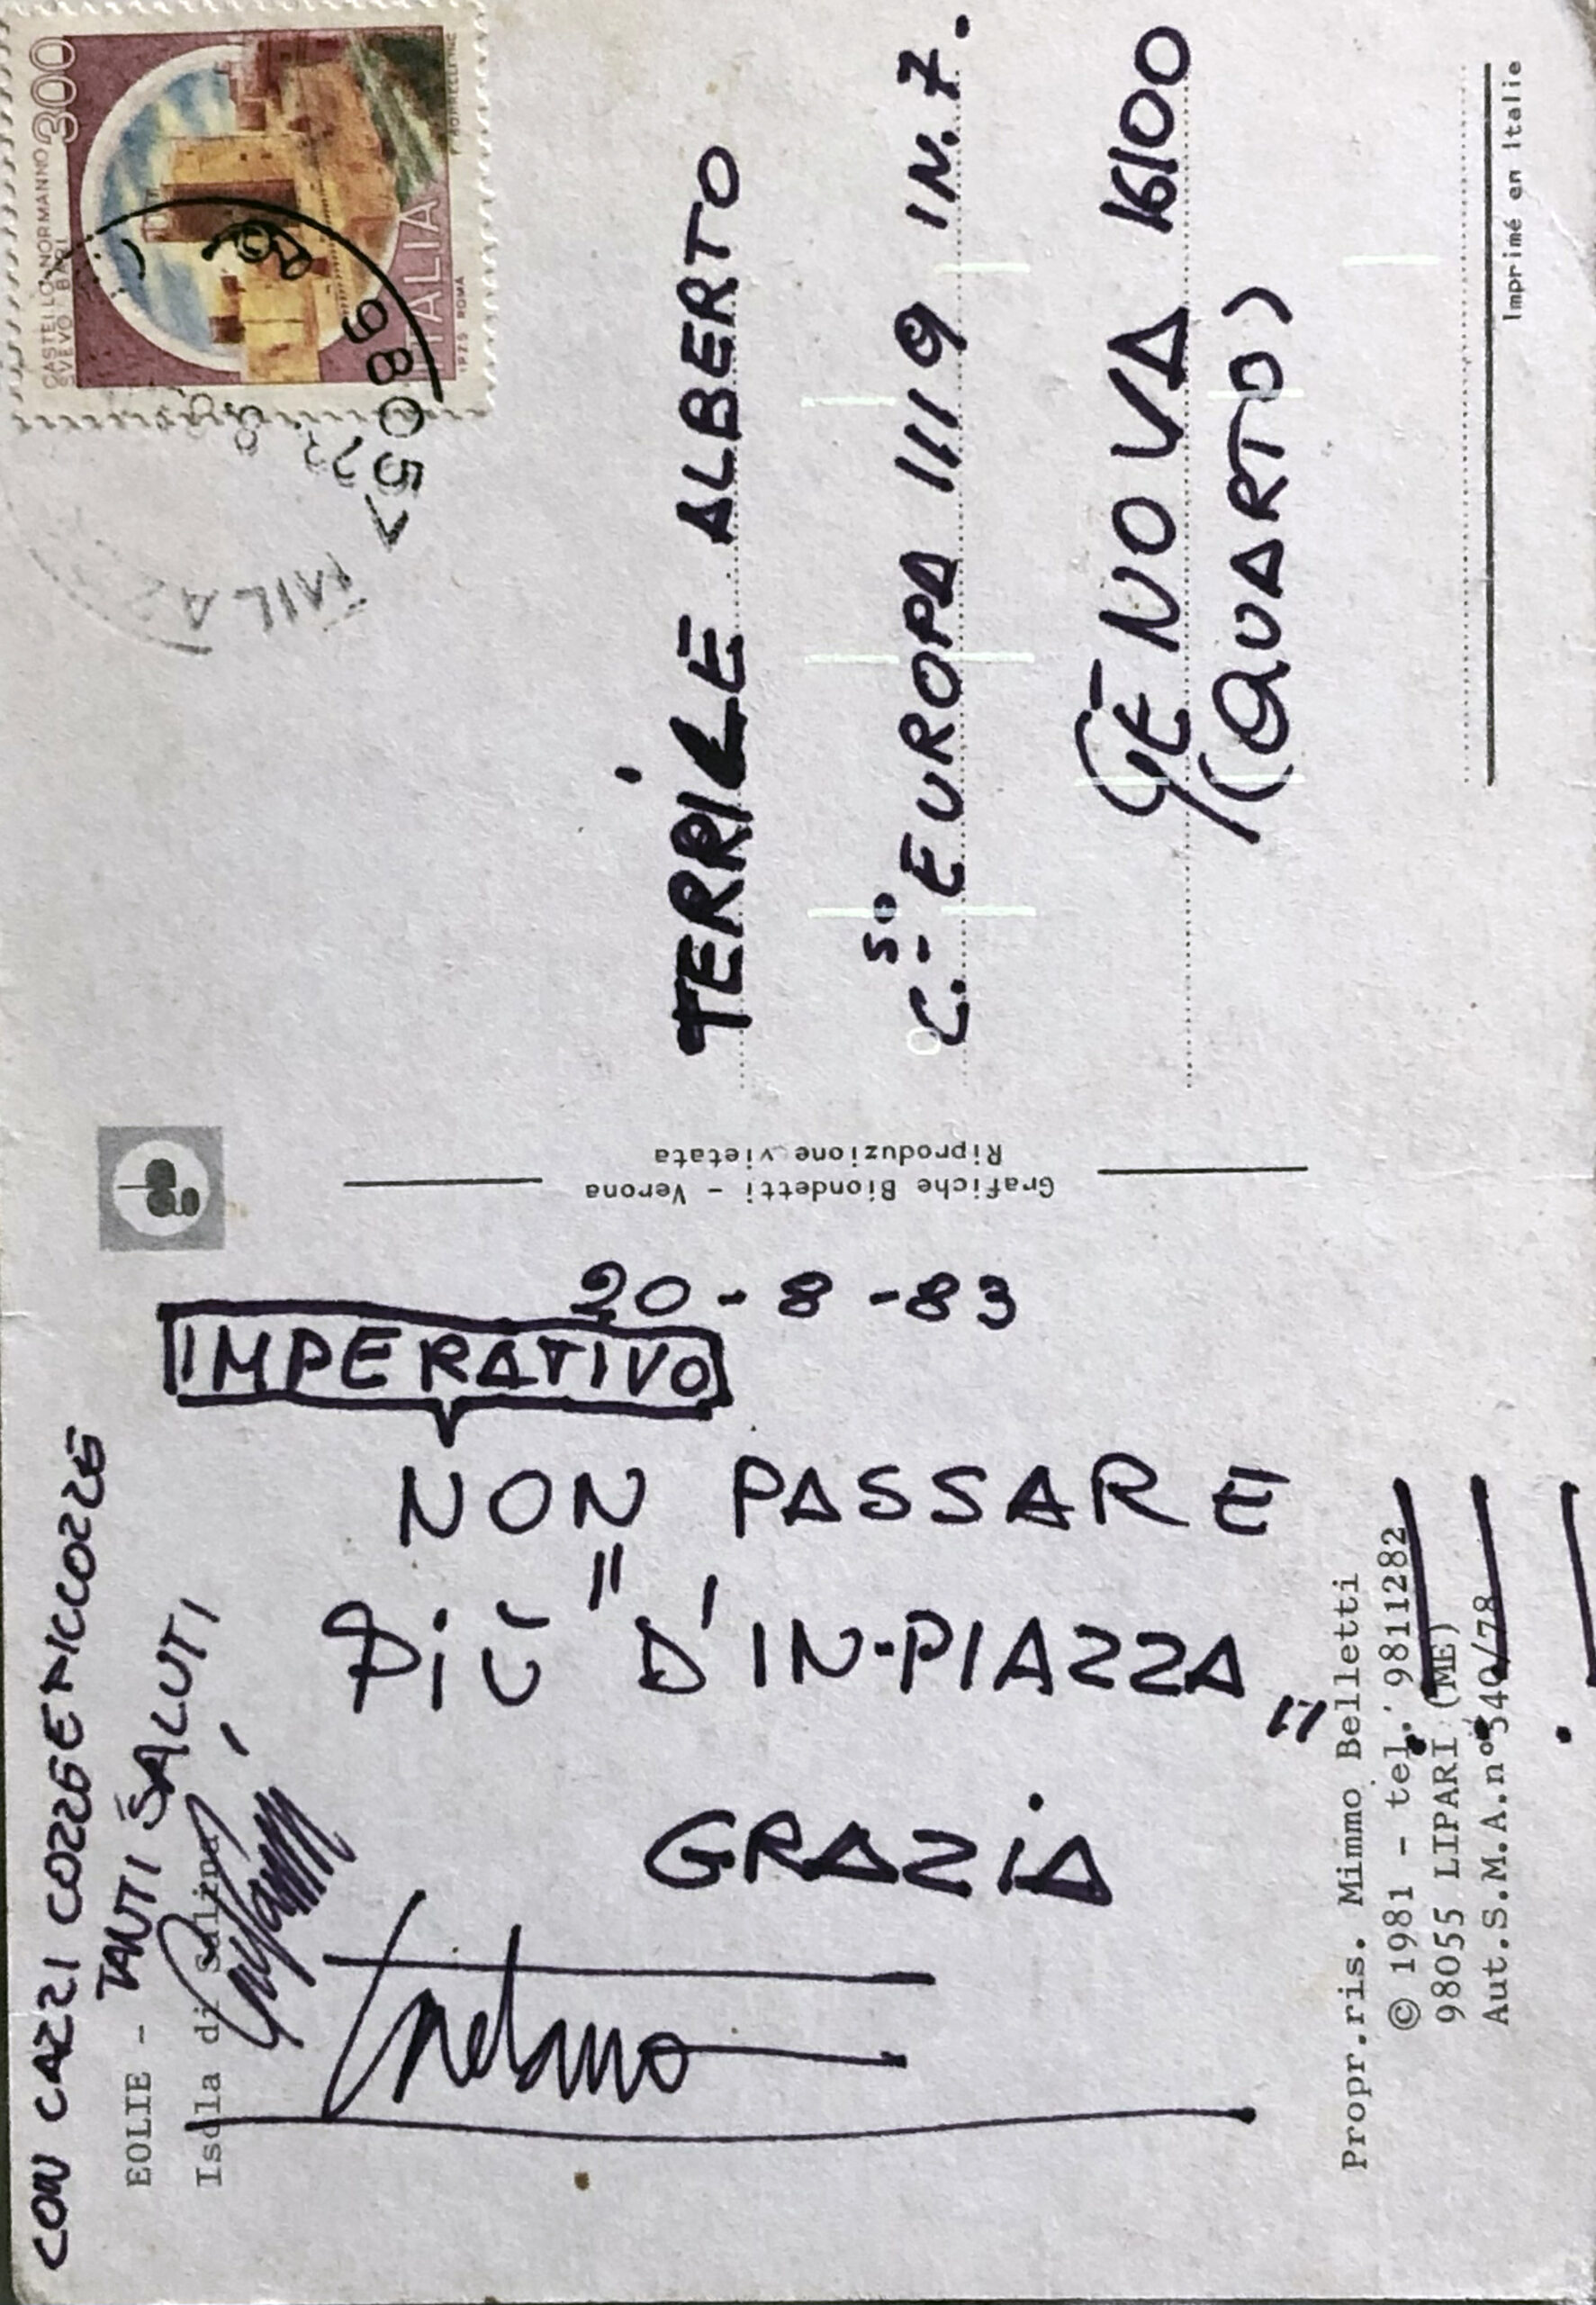 CON CAZZI COZZE E PICCOZZE
TANTI SALUTI
EOLIE -
Isola di Salina
20-8-83
IMPERATIVO
NON PASSARE
PIÙ "D'IN-PIAZZA"
!!!
GRAZIA
Propr.ris. Mimmo Belletti
© 1981 - tel. 9811282
98055 LIPARI (ME)
Aut.S.M.A.n° 540/78
Grafiche Biondetti - Verona
Riproduzione vietata
CASTELLO NORMANNO
SVEVO BARI
300
ITALIA
1975 ROMA
98057
MILAZ
TERRILE ALBERTO
C.SO EUROPA 1119 IN.7.
GENOVA 16100
(QUARTO)
Imprimé en Italie